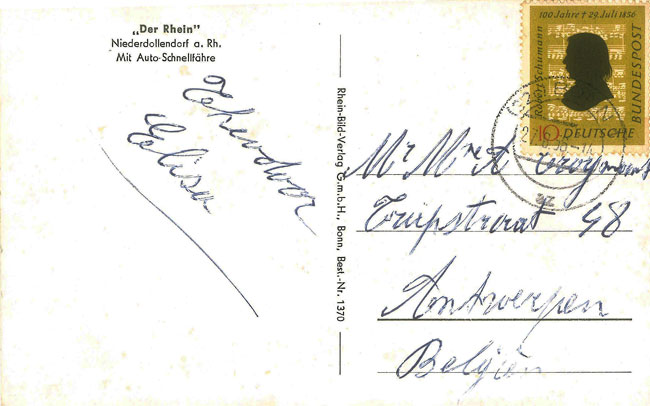 „Der Rhein"
Niederdollendorf a. Rh.
Mit Auto-Schnellfähre
Elisa
Rhein-Bild-Verlag G.m.b.H., Bonn, Best.-Nr. 1370
100 Jahre † 29. Juli 1856
Robert Schumann
BUNDESPOST
10 DEUTSCHE
Mr Mr
48
Antwerpen
Belgien